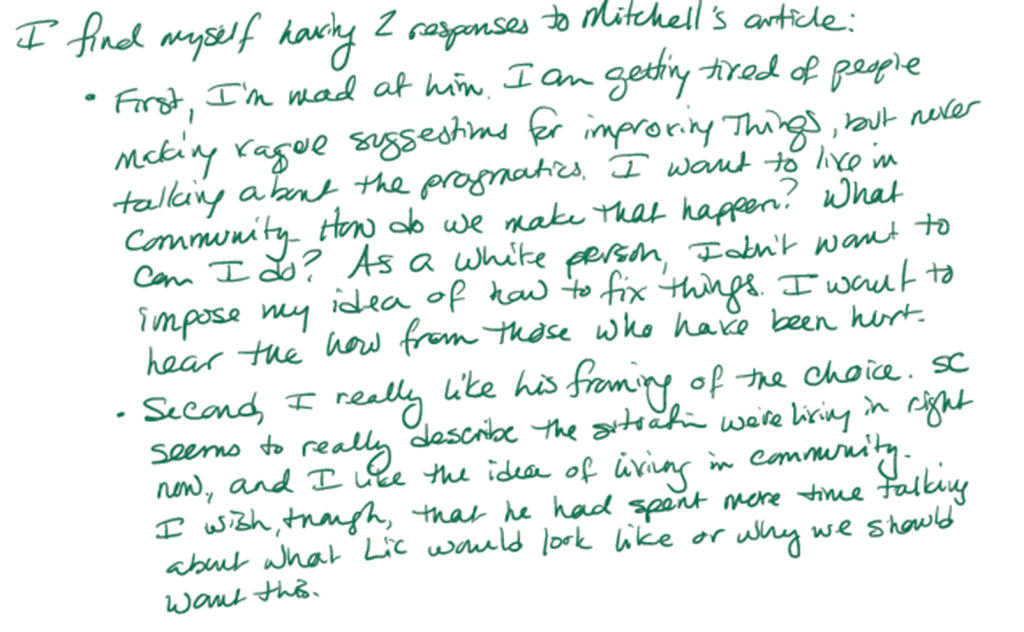 I find myself having 2 responses to Mitchell's article:
• First, I'm mad at him. I am getting tired of people
making vague suggestions for improving things, but never
talking about the pragmatics. I want to live in
community. How do we make that happen? What
can I do? As a white person, I don't want to
impose my idea of how to fix things. I want to
hear the how from those who have been hurt.
• Second, I really like his framing of the choice. SC
seems to really describe the situation we're living in right
now, and I like the idea of living in community.
I wish, though, that he had spent more time talking
about what LiC would look like or why we should
want this.